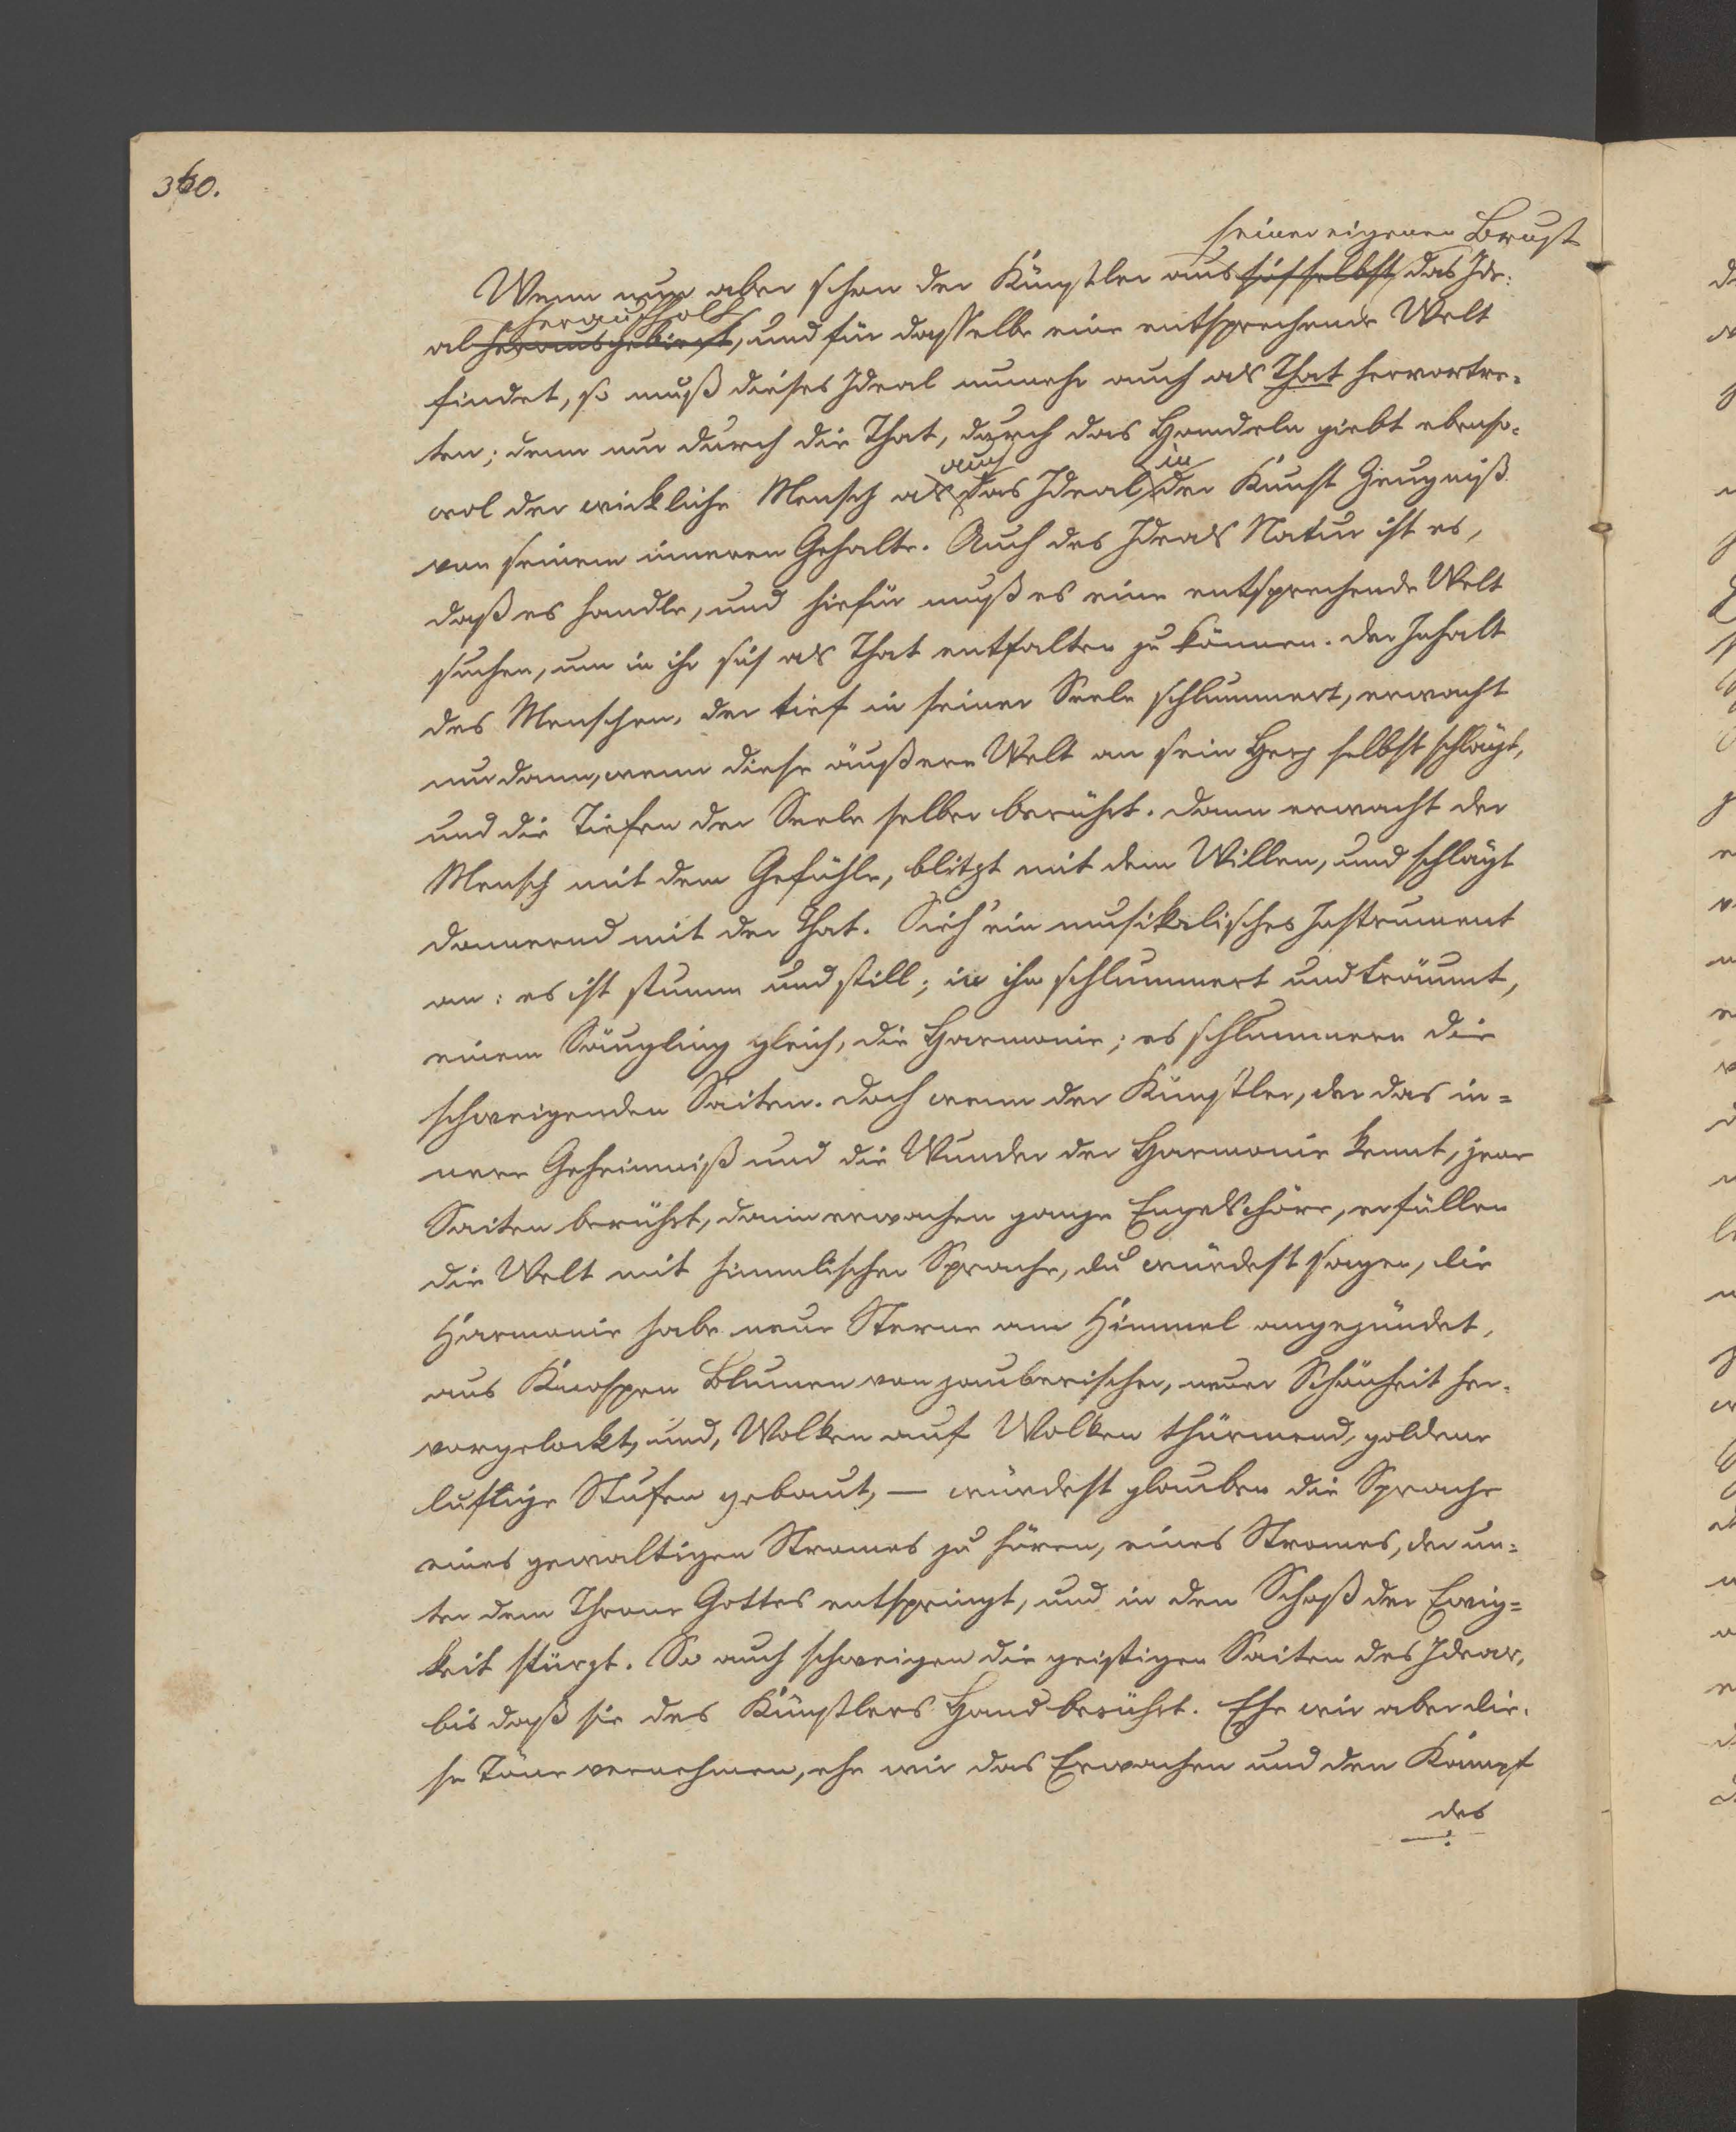 360.
seiner eigenen Brust
Wenn nun aber schon der Künstler aus sich selbst das Ide-
heraufholt
al herausgebiert, und für dasselbe eine entsprechende Welt
findet, so muß dieses Ideal nunmehr auch als That hervortre-
ten; denn nur durch die That, durch das Handeln giebt ebenso-
auch in
wol der wirkliche Mensch als das Ideal der Kunst Zeugniß
von seinem inneren Gehalte. Auch des Ideals Natur ist es,
daß es handle, und hiefür muß es eine entsprechende Welt
suchen, um in ihr sich als That entfalten zu können. Der Inhalt
des Menschen, der tief in seiner Seele schlummert, erwacht
nur dann, wenn diese äußere Welt an sein Herz selbst schlägt,
und die Tiefen der Seele selber berührt. Dann erwacht der
Mensch mit dem Gefühle, blitzt mit dem Willen, und schlägt
donnernd mit der That. Sieh' ein musikalisches Instrument
an: es ist stumm und still; in ihm schlummert und träumt,
einem Säugling gleich, die Harmonie; es schlummern die
schweigenden Saiten. Doch wenn der Künstler, der das in-
nere Geheimniß und die Wunder der Harmonie kennt, jene
Saiten berührt, dann erwachen ganze Engelschöre, erfüllen
die Welt mit himmlischer Sprache, du würdest sagen, die
Harmonie habe neue Sterne am Himmel angezündet,
aus Knospen Blumen von zauberischer, neuer Schönheit her-
vorgelockt, und, Wolken auf Wolken thürmend, goldene
luftige Stufen gebaut, — würdest glauben die Sprache
eines gewaltigen Stromes zu hören, eines Stromes, der un-
ter dem Throne Gottes entspringt, und in den Schoß der Ewig-
keit stürzt. So auch schweigen die geistigen Saiten des Ideals,
bis daß sie des Künstlers Hand berührt. Ehe wir aber die-
se Töne vernehmen, ehe wir das Erwachen und den Kampf
des